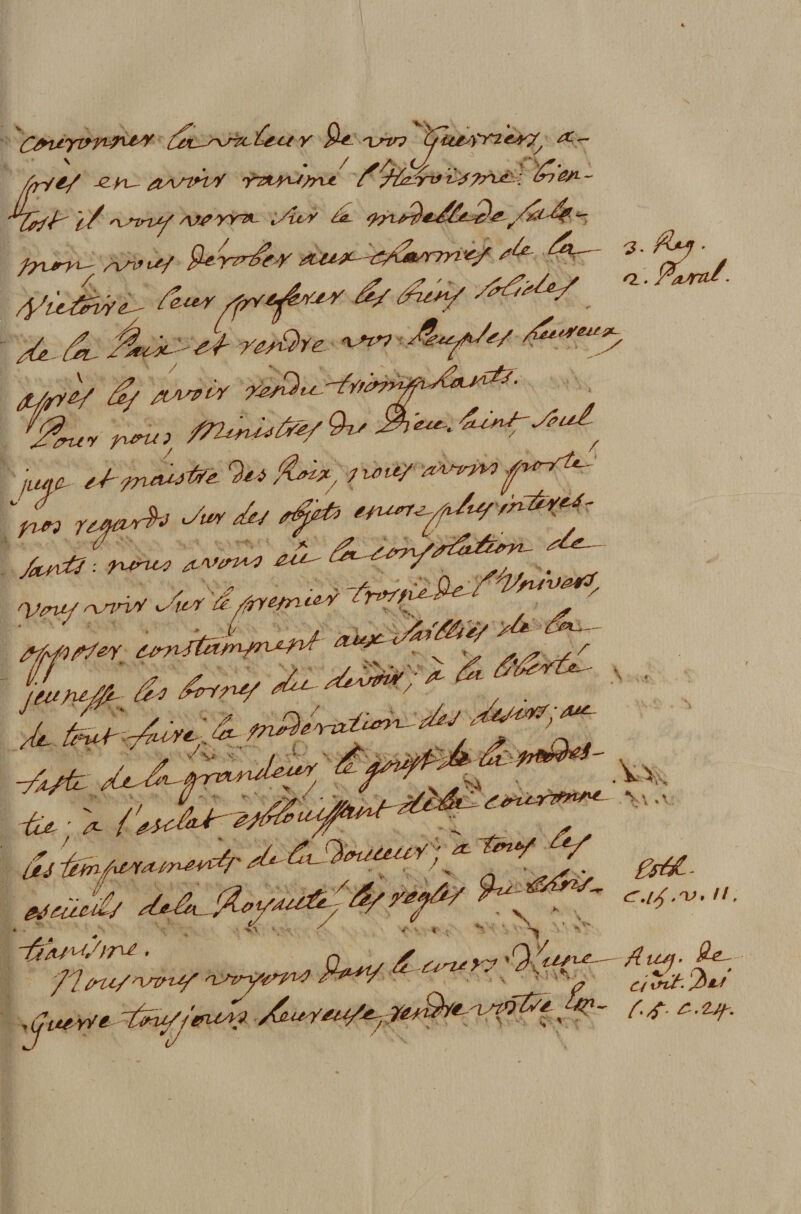 couronner la valeur de vos Guerriers, a-
près en avoir ranimé l'Héroïsme: bien-
tost il vous verra sur le modelle de Salo-
mon, vous dérober aux charmes de la
Victoire, leur preferer les biens solides
de la Paix, et rendre vos Peuples heureux,
après les avoir rendu triomphants.
3. Reg.
2. Paral.
Pour nous, Ministres du Dieu saint, seul
juge et maistre des Roix, nous avons porté
nos regards sur des objets encore plus interes-
sants: nous avons eû la consolation de
vous voir sur le premier trosne de l'Univers,
opposer constamment aux saillies de la
jeunesse les bornes du devoir; à la liberté
de tout faire, la modération des desirs; au
faste de la grandeur, le goust de la modes-
tie; à l'esclat esblouissant de la couronne
les temperaments de la douceur; à tous les
escüeils de la Royauté, les regles du Chris-
tianisme.
Esth.
c. 15. v. 11.
Nous vous voyons dans le cours d'une
Guerre tousjours heureuse, rendre vostre Em-
Aug. de
civit. Dei
l. 5. c. 24.